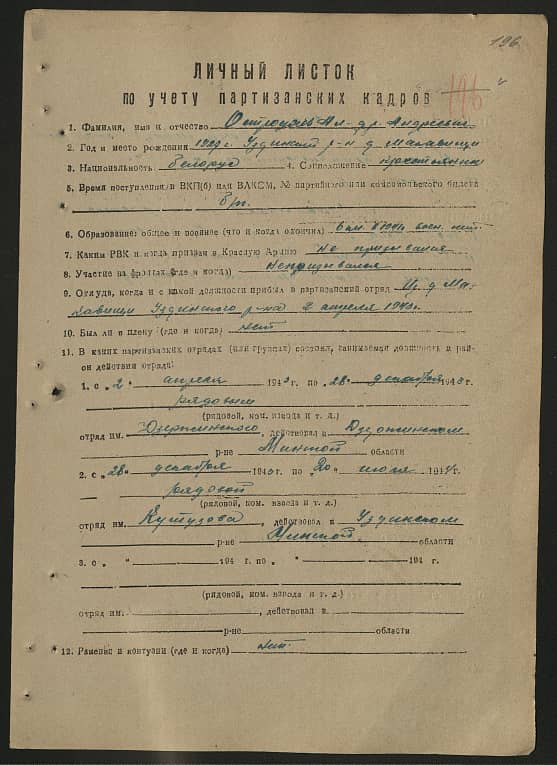 196
ЛИЧНЫЙ ЛИСТОК
по учету партизанских кадров
196
1. Фамилия, имя и отчество Ал-др Андреевич
2. Год и место рождения Узденский р-н д.
3. Национальность Белорус 4. Соцположение крестьянин
5. Время поступления в ВКП(б) или ВЛКСМ, № партийного или комсомольского билета
б/п.
6. Образование: общее и военное (что и когда окончил) 6 кл. воен. нет.
7. Каким РВК и когда призван в Красную Армию Не призывался
8. Участие на фронтах (где и когда) Непризывался
9. Откуда, когда и с какой должности прибыл в партизанский отряд Из д. Ма-
Узденского р-на 2 апреля 1943г.
10. Был ли в плену (где и когда) нет
11. В каких партизанских отрядах (или группах) состоял, занимаемая должность и рай-
он действия отряда:
1. с „2“ апреля 1943 г. по „28“ декабря 1943 г.
рядовым
(рядовой, ком. взвода и т. д.)
отряд им. Дзержинского, действовал в Дзержинском
р-не Минской области
2. с „28“ декабря 1943 г. по „20“ июля 1944 г.
рядовой
(рядовой, ком. взвода и т. д.)
отряд им. Кутузова, действовал в Узденском
р-не Минской области
3. с „ “ 194 г. по „ “ 194 г.
(рядовой, ком. взвода и т. д.)
отряд им. , действовал в
р-не области
12. Ранения и контузии (где и когда) нет.